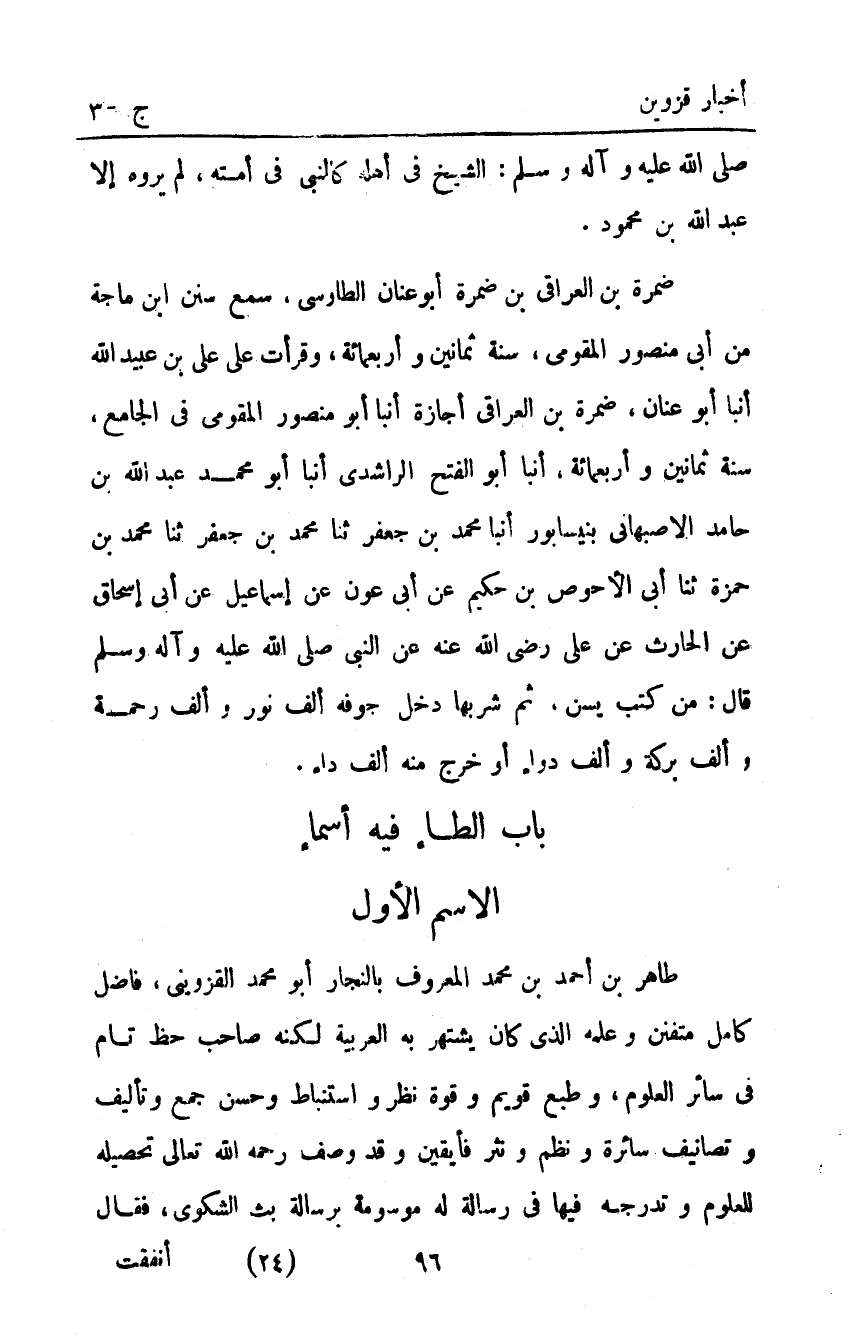 أخبار قزوين ج -٣
صلى الله عليه و آله و سلم : الشيخ فى أهله كالنبى فى أمته ، لم يروه إلا
عبد الله بن محمود .
ضمرة بن العراقى بن ضمرة أبوعنان الطاوسى ، سمع سنن ابن ماجة
من أبى منصور المقومى ، سنة ثمانين و أربعمائة ، وقرأت على على بن عبيد الله
أنبا أبو عنان ، ضمرة بن العراقى أجازة أنبا أبو منصور المقومى فى الجامع ،
سنة ثمانين و أربعمائة ، أنبا أبو الفتح الراشدى أنبا أبو محمد عبد الله بن
حامد الاصبهانى بنيسابور أنبا محمد بن جعفر ثنا محمد بن جعفر ثنا محمد بن
حمزة ثنا أبى الأحوص بن حكيم عن أبى عون عن إسماعيل عن أبى إسحاق
عن الحارث عن على رضى الله عنه عن النبى صلى الله عليه و آله وسلم
قال : من كتب يسن ، ثم شربها دخل جوفه ألف نور و ألف رحمة
و ألف بركة و ألف دواء أو خرج منه ألف داء .
باب الطاء فيه أسماء
الاسم الأول
طاهر بن أحمد بن محمد المعروف بالنجار أبو محمد القزوينى ، فاضل
كامل متفنن و علمه الذى كان يشتهر به العربية لكنه صاحب حظ تام
فى سائر العلوم ، و طبع قويم و قوة نظر و استنباط وحسن جمع وتأليف
و تصانيف سائرة و نظم و نثر فأيقين و قد وصف رحمه الله تعالى تحصيله
للعلوم و تدرجه فيها فى رسالة له موسومة برسالة بث الشكوى ، فقال
٩٦ (٢٤) أنفقت